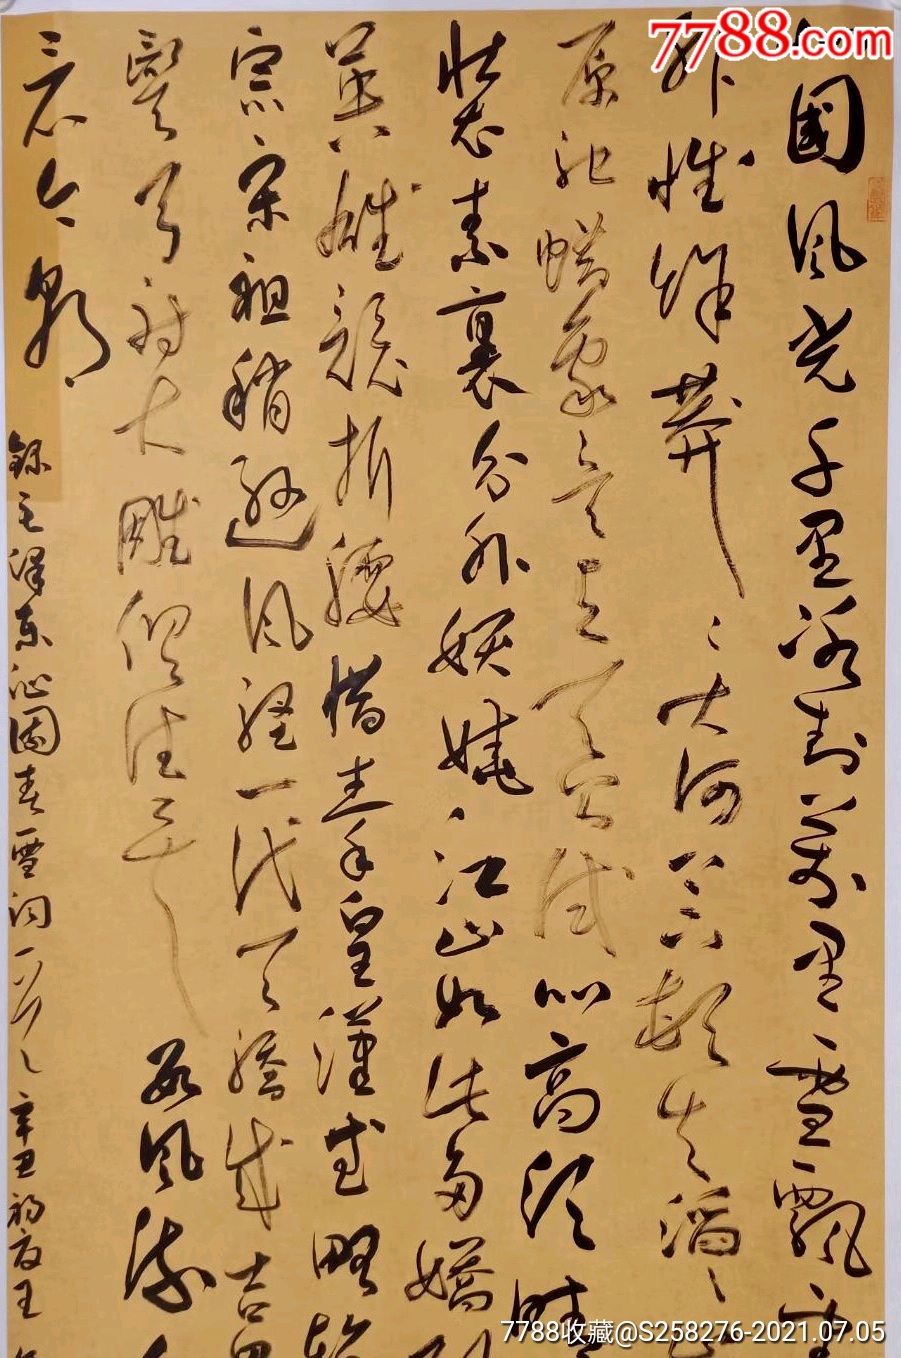 國風光千里冰封萬里雪飄望
外惟餘莽〻大河上下頓失滔〻
原馳蠟象欲與天公試比高須晴
裝素裹分外妖嬈江山如此多嬌引
英雄競折腰惜秦皇漢武略輸
宗宋祖稍遜風騷一代天驕成吉思
彎弓射大雕俱往矣數風流
看今朝
錄毛澤東沁園春雪詞一首辛丑初夏王
7788.com
7788收藏@S258276-2021.07.05